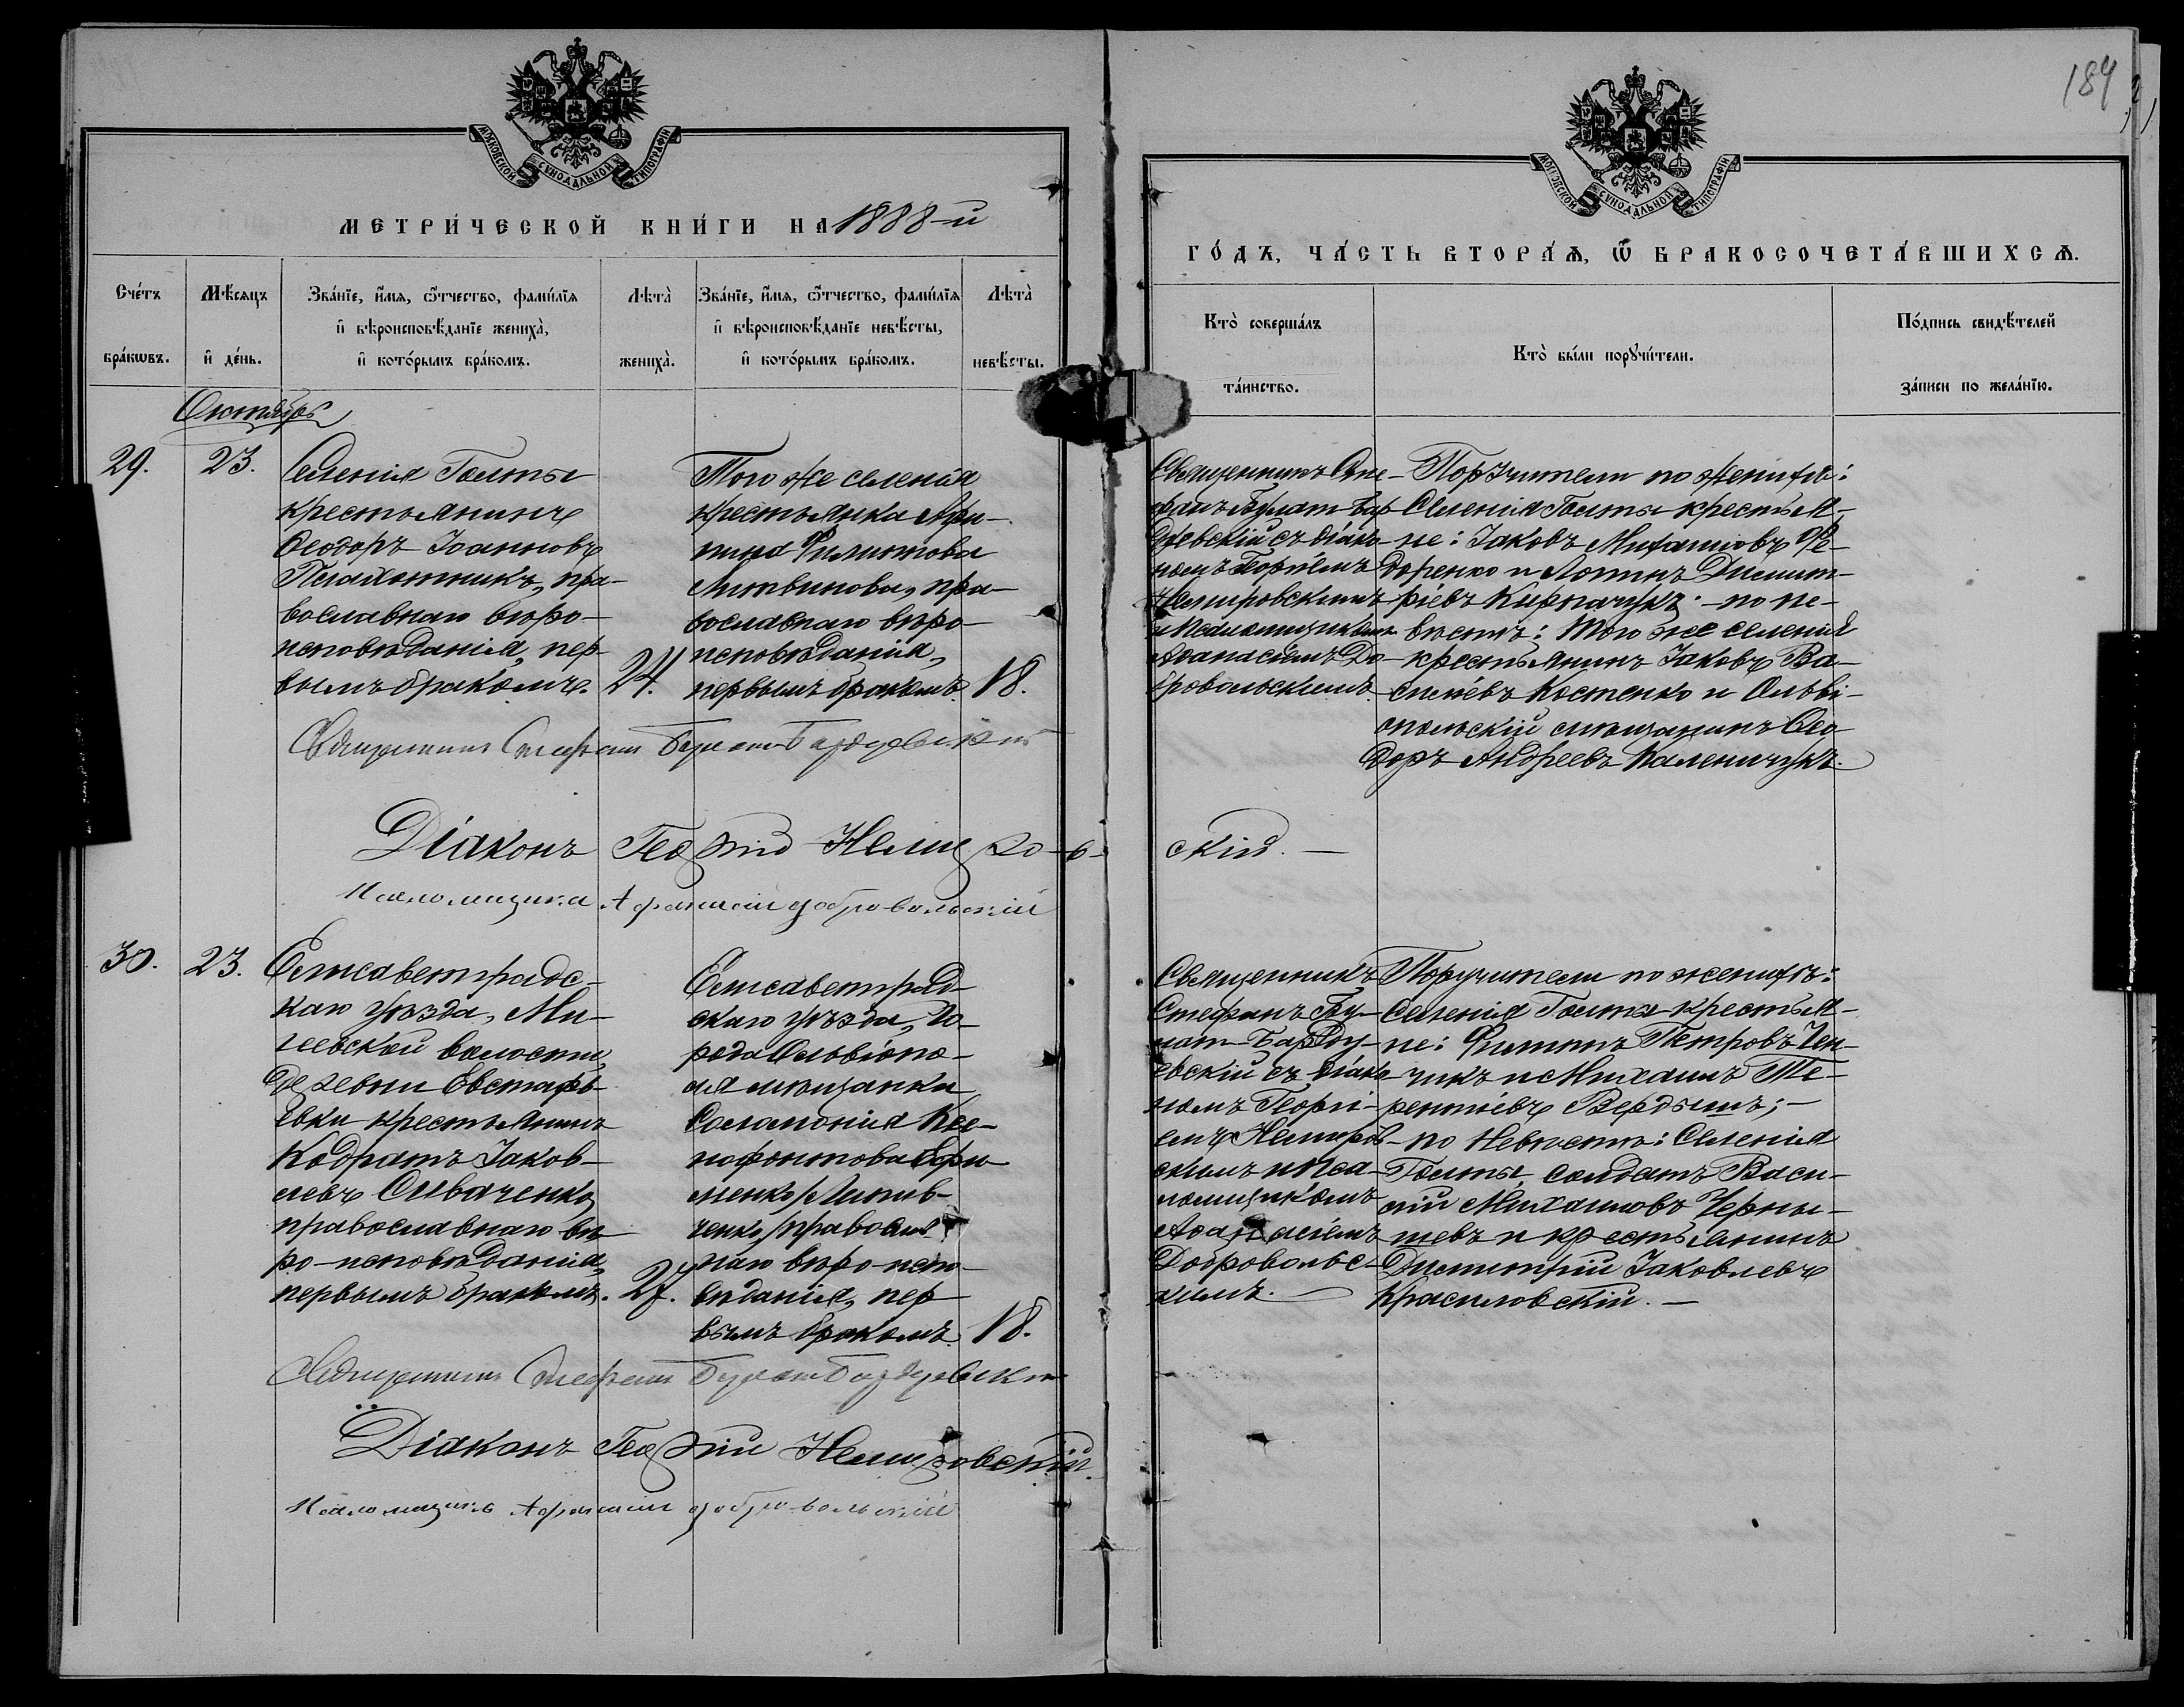 189
МОСКОВСКОЙ СУНОДАЛЬНОЙ ТИПОГРАФІИ
МОСКОВСКОЙ СУНОДАЛЬНОЙ ТИПОГРАФІИ
МЕТРИ́ЧЕСКОЙ КНИ́ГИ НА 1888-й
ГО́ДЪ, ЧА́СТЬ ВТОРА́Ѧ, Ѿ БРАКОСОЧЕТА́ВШИХСѦ.
Сче́тъ бра́кѡвъ.
Мѣ́сѧцъ и҆ де́нь.
Зва́нїе, и҆́мѧ, ѻ҆́тчество, фами́лїѧ
и҆ вѣроисповѣ́данїе жениха̀,
и҆ кото́рымъ бра́комъ.
Лѣта̀ жениха̀.
Зва́нїе, и҆́мѧ, ѻ҆́тчество, фами́лїѧ
и҆ вѣроисповѣ́данїе невѣ́сты,
и҆ кото́рымъ бра́комъ.
Лѣта̀ невѣ́сты.
Кто̀ соверша́лъ
та́инство.
Кто̀ бы́ли порꙋчи́тели.
По́дпись свидѣ́телей
за́писи по жела́нїю.
Октябрь
29.
23.
Селенія Голты
крестьянинъ
Ѳеодоръ Іоанновъ
Плахотникъ, пра-
вославнаго вѣро-
исповѣданія, пер-
вымъ бракомъ.
24.
Того же селенія
крестьянка Агри-
пина Филиппова
Литвинова, пра-
вославнаго вѣро-
исповѣданія,
первымъ бракомъ
18.
Священникъ Сте-
фанъ Булат-Бар
дуевскій съ діако-
номъ Георгіемъ
Немировскимъ
и псаломщикомъ
Аѳанасіемъ До-
бровольскимъ.
Поручители по женихѣ:
Селенія Голты крестья-
не: Іаковъ Михаиловъ Фе-
доренко и Логинъ Димит-
ріевъ Кирпачукъ; по не-
вѣстѣ: того же селенія
крестьянинъ Іаковъ Ва-
силіевъ Костенко и Ольві-
опольскій мѣщанинъ Ѳео-
доръ Андреевъ Каленичукъ.
Священникъ Стефанъ Булат Бардуевскій
Діаконъ Георгій Немиров-
скій.
Псаломщикъ Афанасій Добровольскій
30.
23.
Елисаветградс-
каго уѣзда, Ми-
геевской волости,
деревни Евстафь-
евки крестьянинъ
Кодратъ Іаков-
левъ Сиваченко,
православнаго вѣ-
ро-исповѣданія,
первымъ бракомъ.
27.
Елисаветград-
скаго уѣзда, го-
рода Ольвіопо-
ля мѣщанка
Соломонія Ксе-
нофонтова Ефи-
менко /Липив-
ченко/ правосла-
наго вѣро-испо-
вѣданія, пер-
вымъ бракомъ
18.
Священникъ
Стефанъ Бу-
лат-Барду-
евскій съ діако-
номъ Георгі-
емъ Немиров-
скимъ и пса-
ломщикомъ
Аѳанасіемъ
Добровольс-
кимъ.
Поручители по женихѣ:
Селенія Голты крестья-
не: Филиппъ Петровъ
чукъ и Михаилъ Те-
рентіевъ Вердышъ;
по невѣстѣ: Селенія
Голты, солдатъ Васи-
лій Михаиловъ Черны-
шевъ и крестьянинъ
Димитрій Іаковлевъ
Красиловскій.
Священникъ Стефанъ Булат Бардуевскій
Діаконъ Георгій Немировскій.
Псаломщикъ Афанасій Добровольскій